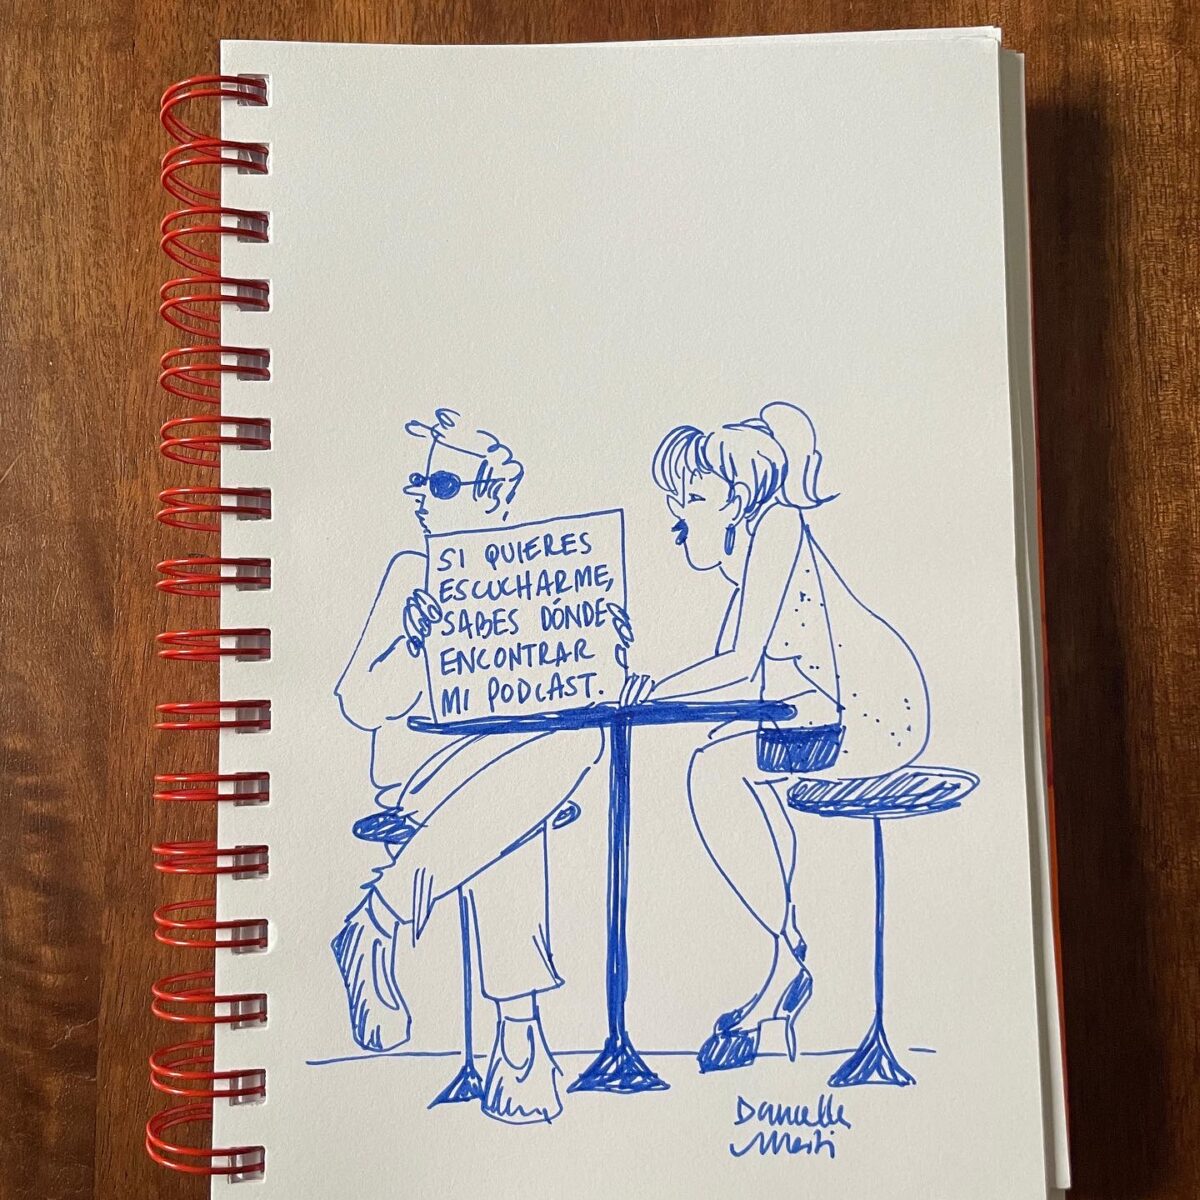 SI QUIERES
ESCUCHARME,
SABES DÓNDE
ENCONTRAR
MI PODCAST.